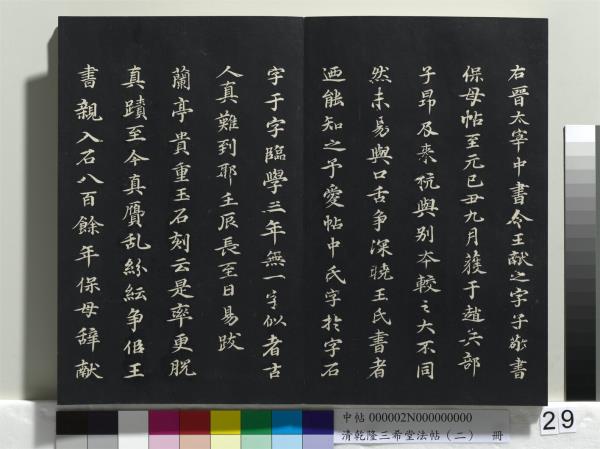 右晉太宰中書令王獻之字子敬書
保母帖至元己丑九月獲于趙兵部
子昂及来杭與别本較之大不同
然未易與口舌争深曉王氏書者
迺能知之予愛帖中氏字於字石
字于字臨學三年無一字似者古
人真難到耶壬辰長至日易跋
蘭亭貴重玉石刻云是率更脱
真蹟至今真贋乱紛紜争侣王
書親入石八百餘年保母辭獻
中帖 000002N000000000
清乾隆三希堂法帖（二） 冊
29